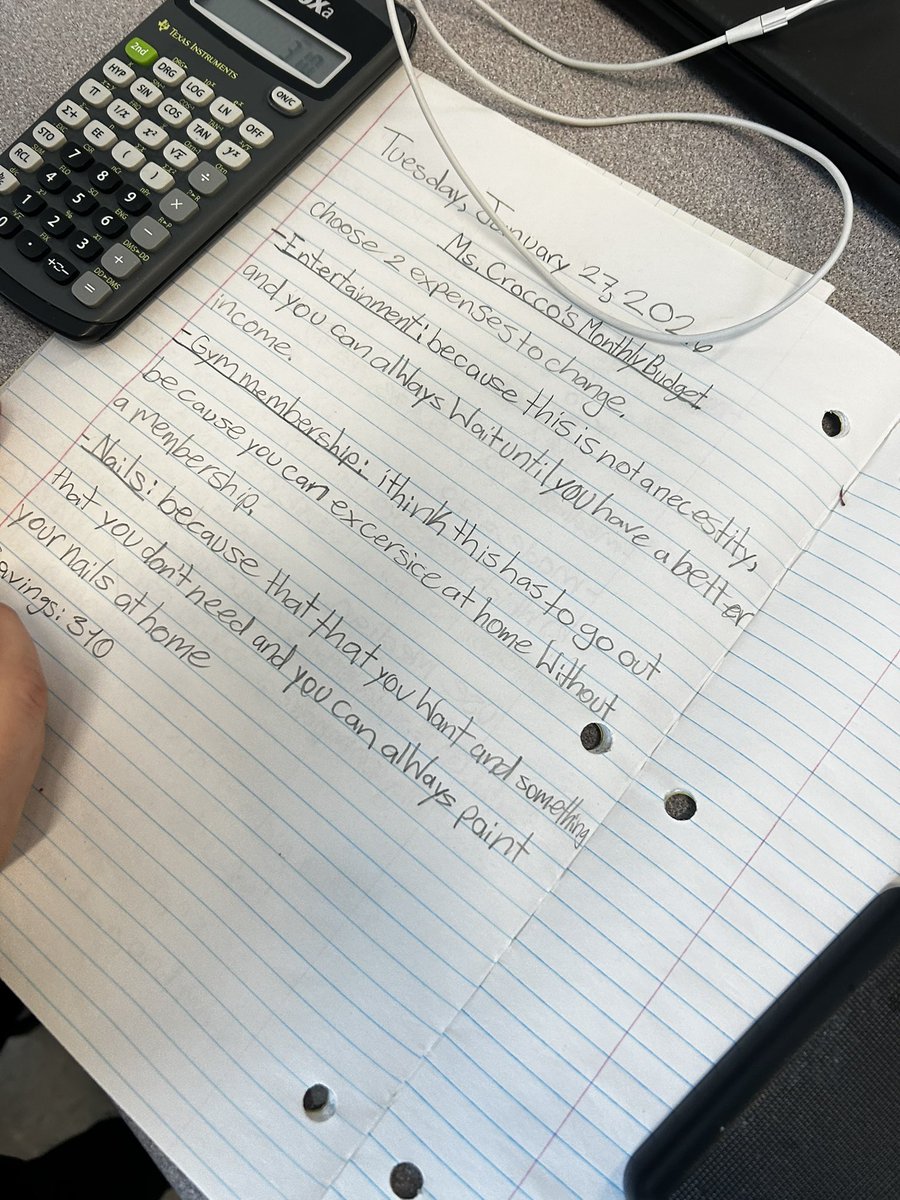 Tuesday, January 27, 2026
Ms. Crocco's Monthly Budget
choose 2 expenses to change.
-Entertainment: because this is not a necestity,
and you can allways Wait until you have a better
income.
-Gym membership: i think this has to go out
because you can excersice at home Without
a membership.
-Nails: because that that you Want and something
that you don't need and you can allways paint
your nails at home
avings: 310
TEXAS INSTRUMENTS
2nd
DRG
LOG
LN
OFF
ON/C
HYP
SIN
COS
TAN
yˣ
π
1/x
x²
√x
÷
Σ+
EE
(
)
×
STO
7
8
9
−
RCL
4
5
6
+
1
2
3
=
0
.
+⇆−